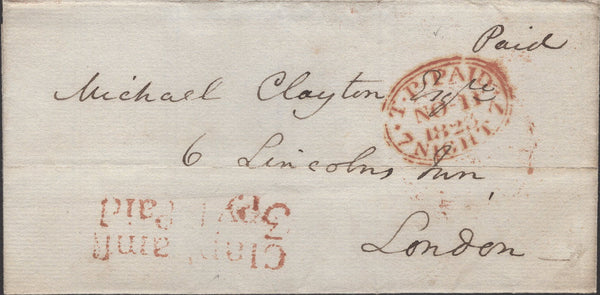 Paid
Michael Clayton Esqre
6 Lincolns Inn
London
T.P PAID
NO 11
7 NIGHT 7
3py P Paid